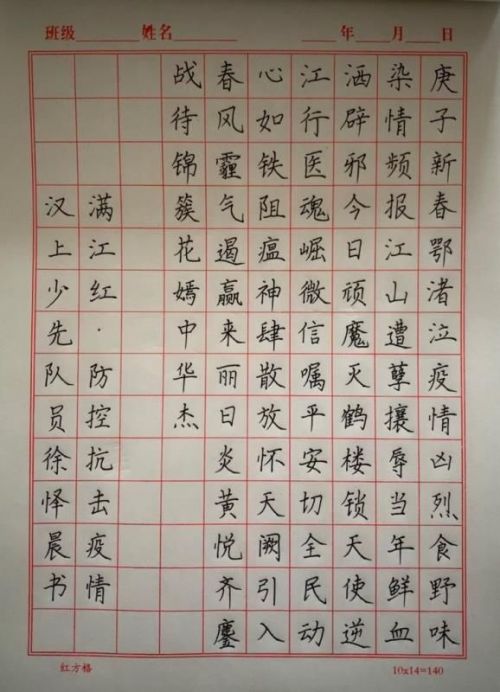 班级 姓名 年 月 日
庚子新春鄂渚泣疫情凶烈食野味
染情频报江山遭孽攘辱当年鲜血
洒辟邪今日顽魔灭鹤楼锁天使逆
江行医魂崛微信嘱平安切全民动
心如铁阻瘟神肆散放怀天阙引入
春风霾气遏赢来丽日炎黄悦齐鏖
战待锦簇花嫣中华杰
满江红·防控抗击疫情
汉上少先队员徐怿晨书
红方格 10x14=140